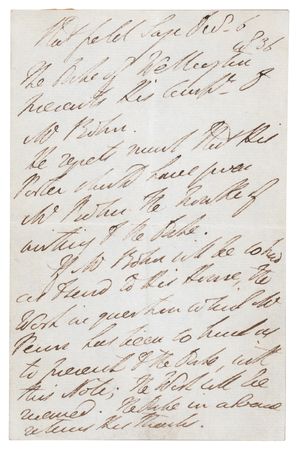 Feb. 6
1836
The Duke of Wellington
presents his Compts. to
Mr Bohn.
He regrets much that his
Porter should have given
Mr Bohn the trouble of
writing to the Duke.
If Mr Bohn will be so kind
as send to his House, the
Work in question which Mr
has been so kind as
to present to the Duke, with
this Note; the Work will be
received. The Duke in advance
returns his thanks.